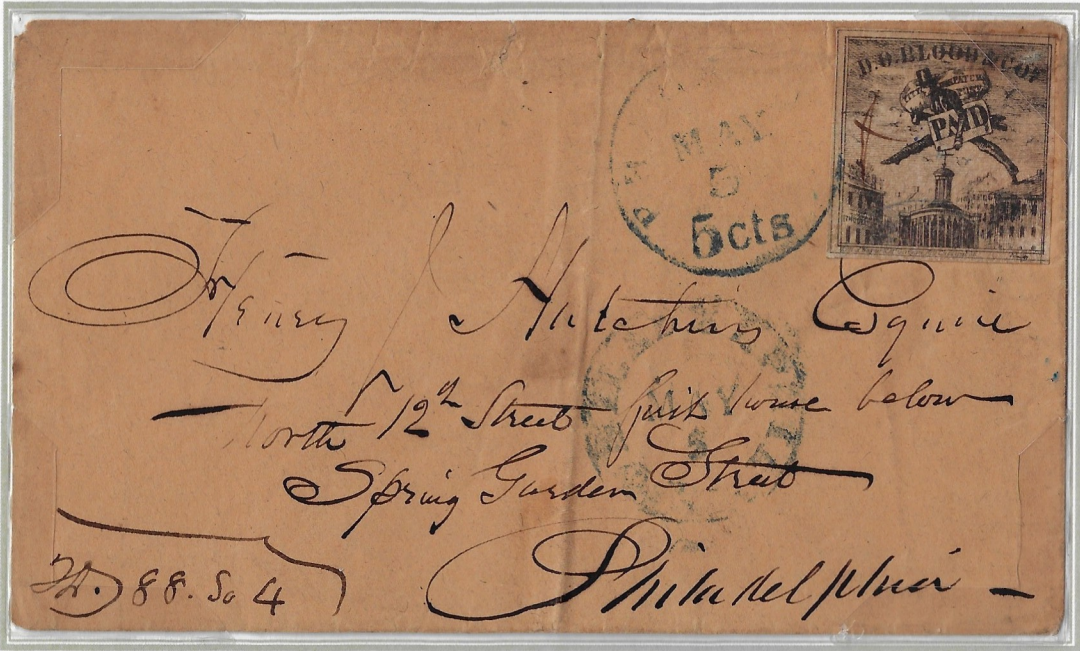 D.O. BLOOD & CO'S
CITY DESPATCH
PAID
PH
MAY
5
5cts
Henry J Hutchins Esquire
North 12th Street first house below
Spring Garden Street
Philadelphia
MAY
5
88. So 4